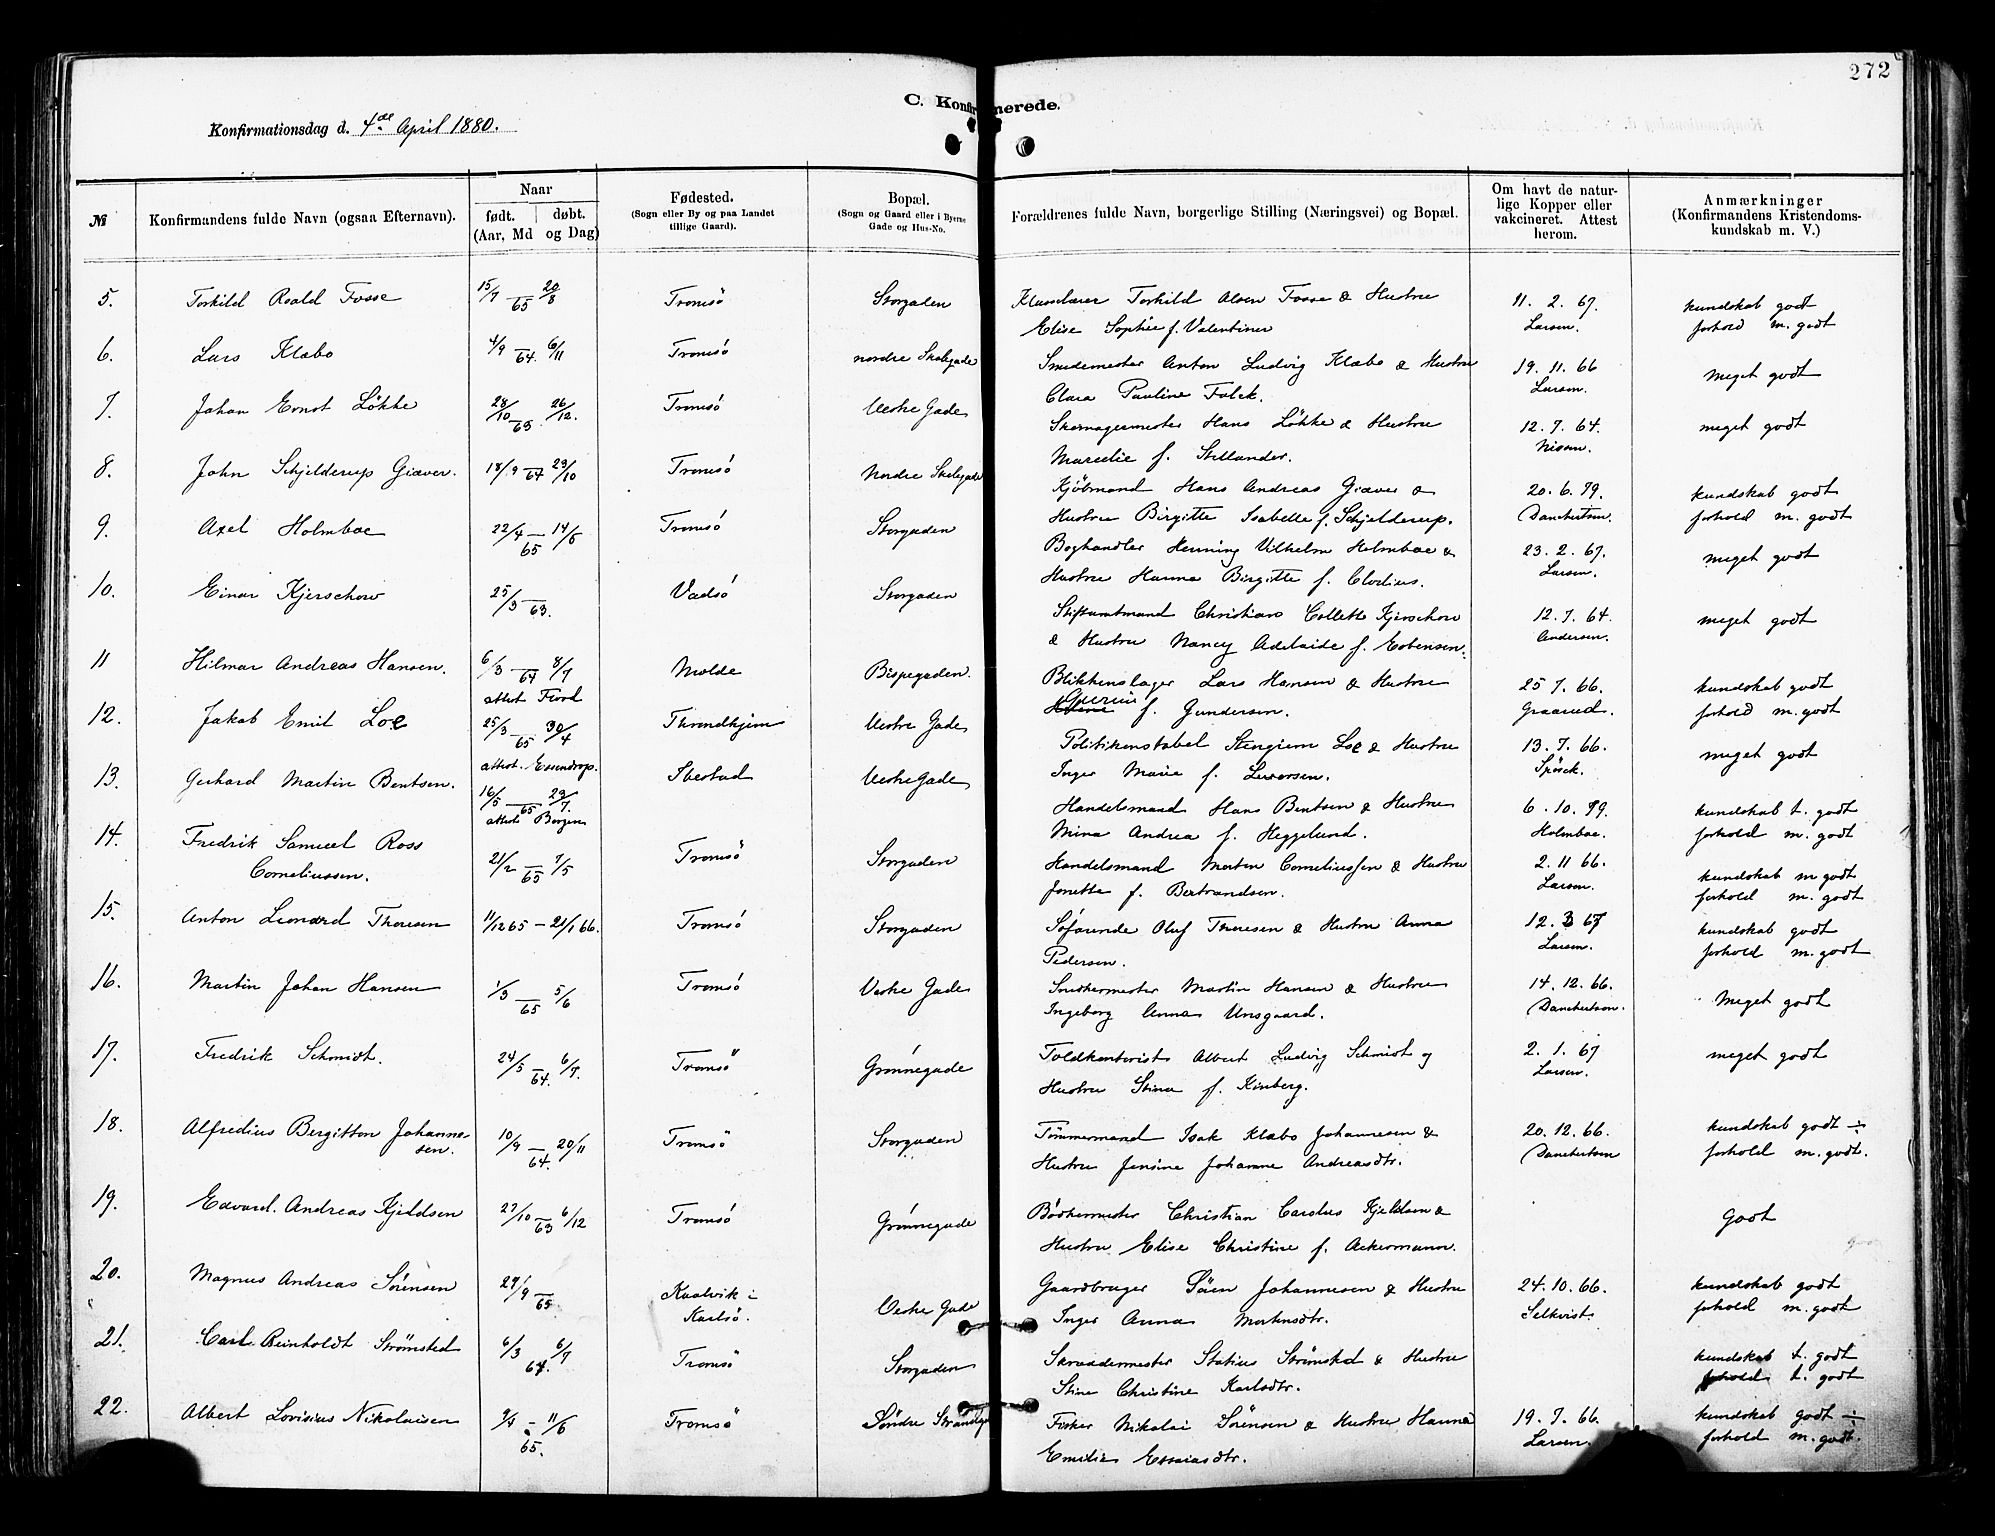 272
C. Konfirmerede.
Konfirmationsdag d. 4de April 1880.
№ Konfirmandens fulde Navn (ogsaa Efternavn). Naar født. døbt. (Aar, Md og Dag) Fødested. (Sogn eller By og paa Landet tillige Gaard). Bopæl. (Sogn og Gaard eller i Byerne Gade og Hus-No. Forældrenes fulde Navn, borgerlige Stilling (Næringsvei) og Bopæl. Om havt de naturlige Kopper eller vakcineret. Attest herom. Anmærkninger (Konfirmandens Kristendomskundskab m. V.)
5. Torkild Roald Fosse 15/7 65 20/8 Tromsö Storgaden Klasselærer Torkild Alsen Fosse & Hustru 11. 2. 67. kundskab godt
Elise Sophie f. Valentiner Larsen. forhold m. godt
6. Lars Klæbo 4/9 64. 6/11 Tromsö nordre Skolegade Smedemester Anton Ludvig Klæbo & Hustru 19. 11. 66 meget godt
Clara Pauline Falck. Larsen.
7. Johan Ernst Lökke 28/10 63. 26/12. Tromsö Vestre Gade Skomagermester Hans Lökke & Hustru 12. 7. 64. meget godt
Marselie f. Stillander. Nissen.
8. John Schjelderup Giæver. 18/9 64 29/10 Tromsö Nordre Skolegade Kjöbmand Hans Andreas Giæver & 20. 6. 79. kundskab godt
Hustru Birgitte Isabelle f. Schjelderup. Danchertsen. forhold m. godt
9. Axel Holmboe 22/4 65 14/5 Tromsö Storgaden Boghandler Henning Vilhelm Holmboe & 23. 2. 67. meget godt
Hustru Hanna Birgitte f. Clodius. Larsen.
10. Einar Kjerschow 25/3 63. Vadsö Storgaden Stiftamtmand Christian Collett Kjerschow 12. 7. 64. meget godt
& Hustru Nancy Adelaide f. Esbensen. Andersen.
11 Hilmar Andreas Hansen. 6/3 64 8/7 Molde Bispegaden. Blikkenslager Lars Hansen & Hustru 25 7. 66. kundskab godt
attest f. Gundersen. Graarud. forhold m. godt
12. Jakob Emil Loe 25/3 65 30/4 Throndhjem Vestre Gade Politikonstabel Loe & Hustru 13. 7. 66. meget godt
attest. Essendrop. Inger Marie f. Spörck.
13. Gerhard Martin Bentsen. 16/5 65 29/7. Ibestad Vestre Gade Handelsmand Hans Bentsen & Hustru 6. 10. 79. kundskab t. godt
attest Mina Andrea f. Heggelund. Holmboe. forhold m. godt
14. Fredrik Samuel Ross 21/2 65 7/5 Tromsö Storgaden Handelsmand Morten Corneliussen & Hustru 2. 11 66. kundskab m godt
Corneliussen. Jonetta f. Bertrandsen. Larsen. forhold m. godt
15. Anton Leonard Thoresen 11/12 65 – 21/1 66. Tromsö Storgaden Söfarende Oluf Thoresen & Hustru Anna 12. 3 67 kundskab godt
Pedersen. Larsen. forhold m. godt
16. Martin Johan Hansen 1/3 65 5/6 Tromsö Vestre Gade Snedkermester Martin Hansen & Hustru 14. 12. 66. Meget godt
Ingeborg Anna Unsgaard. Danchertsen.
17. Fredrik Schmidt. 24/5 64. 6/7. Tromsö Grönnegade Toldkontorist Albert Ludvig Schmidt og 2. 1. 67 meget godt
Hustru Stina f. Kinberg. Larsen.
18. Alfredius Bergitton Johanne- 10/9 64. 20/11 Tromsö Storgaden Tömmermand Isak Klæbo Johannesen & 20. 12. 66. kundskab godt ÷
sen. Hustru Jensine Johanne Andreasdtr. Danchertsen forhold m. godt.
19. Edvard Andreas Kjeldsen 27/10 63 6/12 Tromsö Grönnegade Bödkermester Christian Carolus Kjeldsen & Godt
Hustru Elise Christine f. Ackermann.
20. Magnus Andreas Sörensen 29/9 65 Kaalvik i Vestre Gade Gaardbruger Sören Johannesen & Hustru 24. 10. 66. kundskab godt
Karlsö. Inger Anna Mortensdtr. Selkvist. forhold m. godt
21. Carl Reinholdt Strömsted 6/3 64. 6/7 Tromsö Storgaden Skræddermester Statius Strömsted & Hustru kundskab t. godt
Stine Christine Karlsdtr. forhold t. godt
22. Albert Lovisius Nikolaisen 65. 11/6 Tromsö Söndre Strandg Fisker Nikolai Sörensen & Hustru Hanna 19. 7. 66. kundskab godt ÷
Emilie Essaiasdtr. Larsen. forhold m. godt.